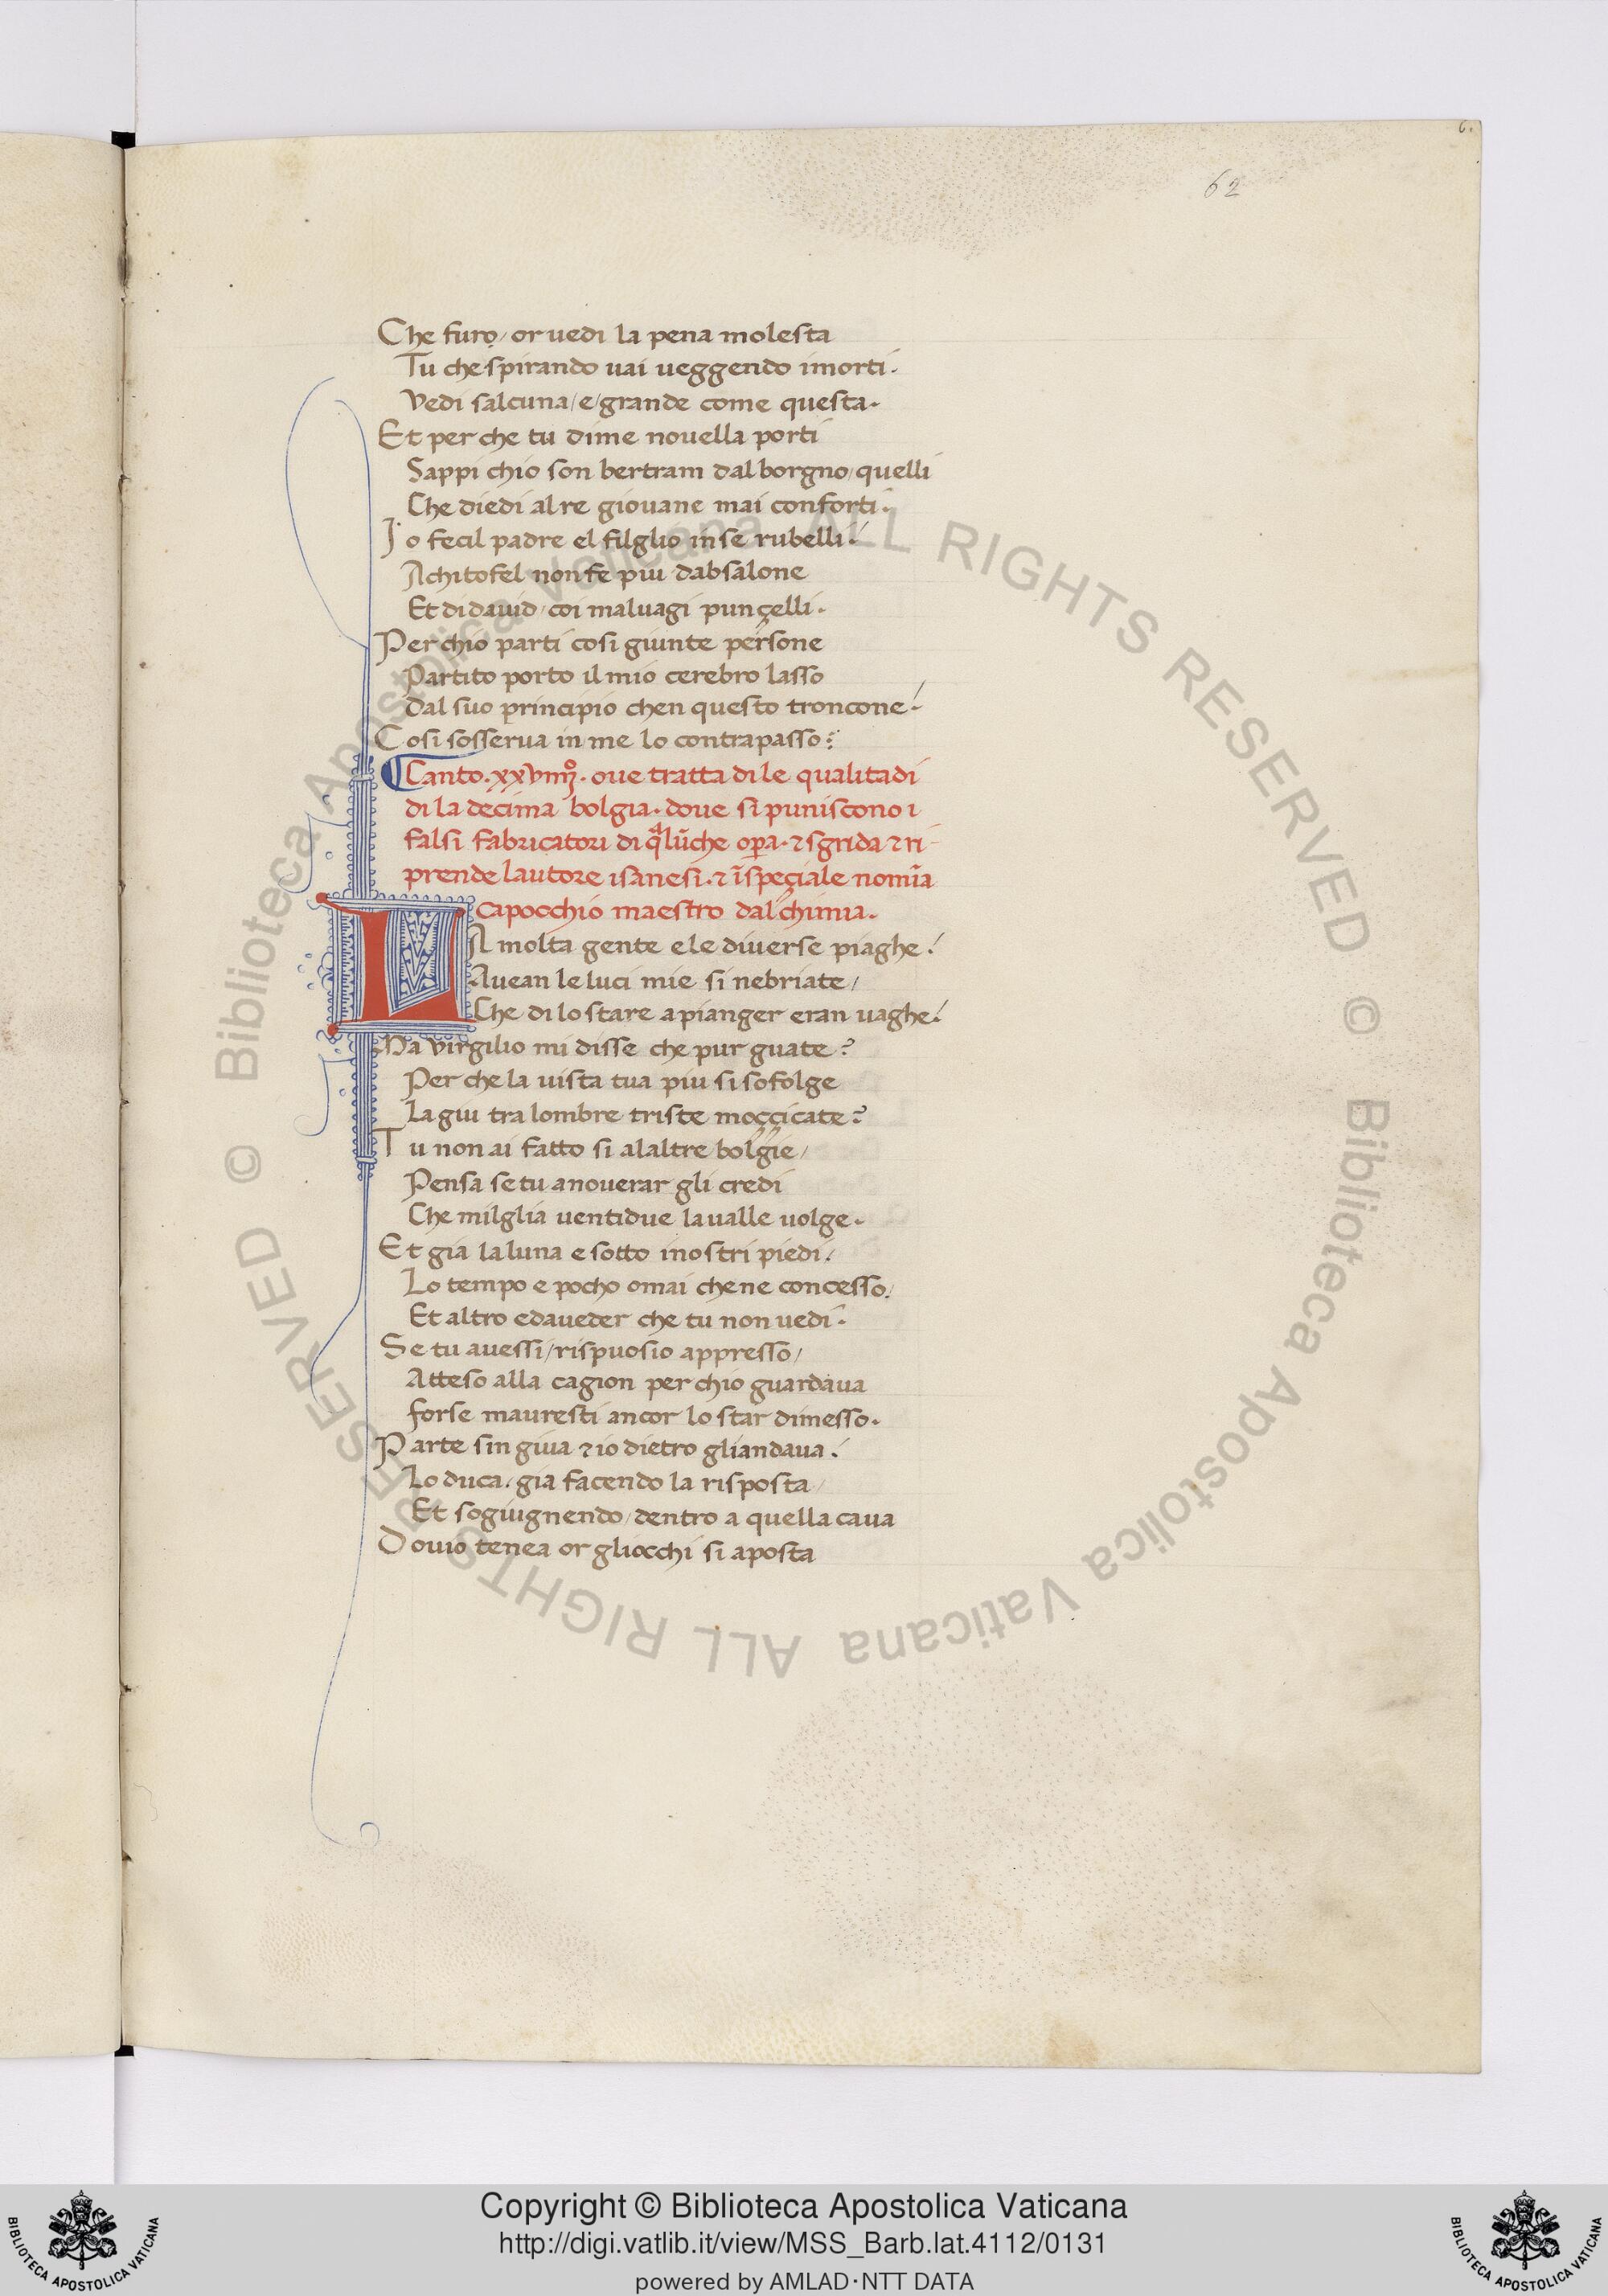 62
Che furo / or uedi la pena molesta
Tu che spirando uai ueggendo imorti.
vedi salcuna / e / grande come questa.
Et per che tu dime nouella porti
Sappi chio son bertram dal borgno / quelli
Che diedi al re giouane mai conforti.
Io fecil padre el filglio inse rubelli.
Achitofel non fe piu dabsalone
Et di dauid / coi maluagi punçelli.
Per chio parti cosi giunte persone
Partito porto il mio cerebro lasso
Dal suo principio chen questo troncone.
Cosi sosserua in me lo contrapasso:
Canto. xxviiijº. oue tratta di le qualitadi
di la decima bolgia. doue si puniscono i
falsi fabricatori di q̄lūche opa. ⁊ sgrida ⁊ ri-
prende lautore isanesi. ⁊ īspeçiale nomīa
capocchio maestro dalchimia.
LA molta gente e le diuerse piaghe.
Auean le luci mie si nebriate /
Che di lo stare a pianger eran uaghe.
Ma virgilio mi disse che pur guate?
Per che la uista tua piu si sofolge
La giu tra lombre triste moççicate?
Tu non ai fatto si alaltre bolgie /
Pensa se tu anouerar gli credi
Che milglia uentidue la ualle uolge.
Et gia la luna e sotto inostri piedi.
Lo tempo e pocho omai chene concesso.
Et altro edaueder che tu non uedi.
Se tu auessi / rispuosio appresso /
Atteso alla cagion per chio guardaua
forse mauresti ancor lo star dimesso.
Parte sin giua ⁊ io dietro gliandaua.
Lo duca. gia facendo la risposta /
Et sogiugnendo / dentro a quella caua
Douio tenea or gliocchi si aposta
© Biblioteca Apostolica Vaticana ALL RIGHTS RESERVED
© Biblioteca Apostolica Vaticana ALL RIGHTS RESERVED
BIBLIOTECA APOSTOLICA VATICANA
Copyright © Biblioteca Apostolica Vaticana
http://digi.vatlib.it/view/MSS_Barb.lat.4112/0131
powered by AMLAD·NTT DATA
BIBLIOTECA APOSTOLICA VATICANA